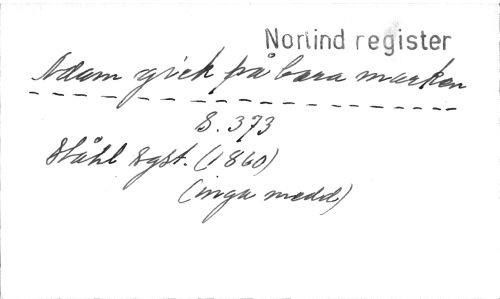 Norlind register
Adam gick på bara marken
S. 373
Ståhl Egst. (1860)
(inga medd)